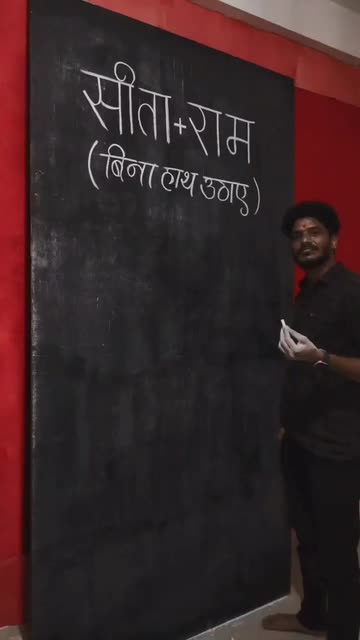 सीता+राम
(बिना हाथ उठाए)